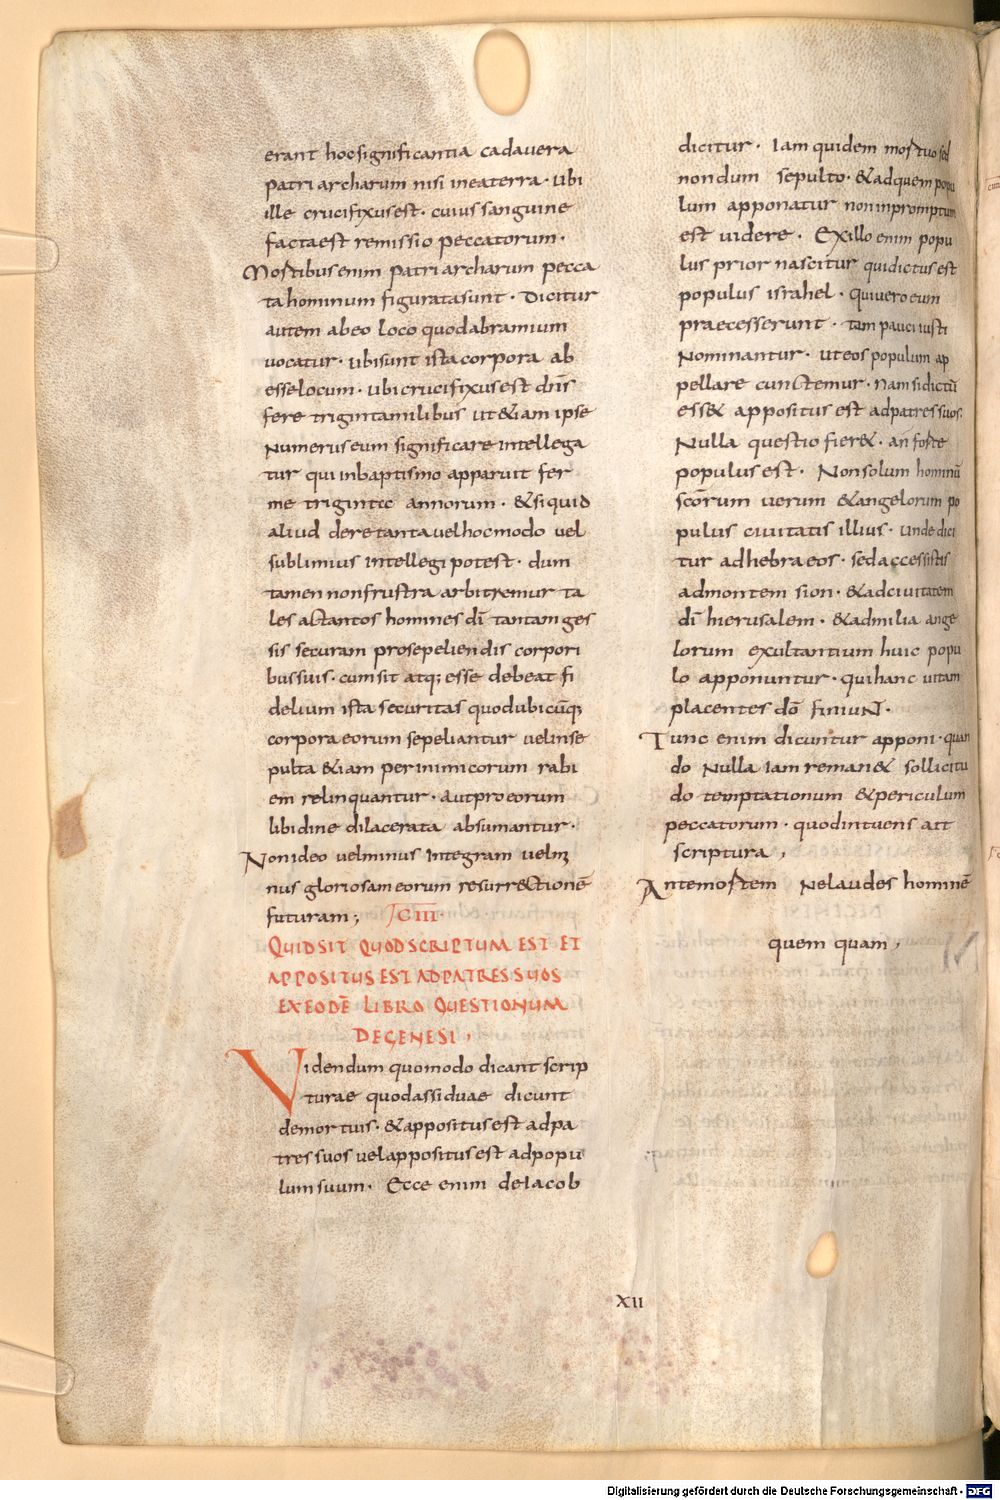 erant hoc significantia cadavera
patriarcharum nisi in ea terra · ubi
ille crucifixus est · cuius sanguine
facta est remissio peccatorum ·
Mortibus enim patriarcharum pecca
ta hominum figurata sunt · Dicitur
autem ab eo loco quod abramium
vocatur · ubi sunt ista corpora ab
esse locum · ubi crucifixus est dn̄s
fere triginta milibus ut &iam ipse
numerus eum significare intellega
tur qui in baptismo apparuit fer
me triginta annorum · & si quid
aliud de re tanta vel hoc modo vel
sublimius intellegi potest · dum
tamen non frustra arbitremur ta
les ac tantos homines dī tantam ges
sis se curam pro sepeliendis corpori
bus suis · cum sit atq; esse debeat fi
delium ista securitas quod ubicūq;
corpora eorum sepeliantur vel inse
pulta &iam per inimicorum rabi
em relinquantur · aut pro eorum
libidine dilacerata absumantur ·
Non ideo vel minus integram vel mi
nus gloriosam eorum resurrectionē
futuram ;
QUID SIT QUOD SCRIPTUM EST ET
APPOSITUS EST AD PATRES SUOS
EX EODĒ LIBRO QUESTIONUM
DE GENESI ,
Videndum quomodo dicant scrip
turae quod assiduae dicunt
de mortuis · & appositus est ad pa
tres suos vel appositus est ad popu
lum suum · Ecce enim de iacob
dicitur · Iam quidem mortuo sed
nondum sepulto · & ad quem popu
lum apponatur non in promptum
est videre · Ex illo enim popu
lus prior nascitur qui dictus est
populus israhel · Qui vero eum
praecesserunt · tam pauci iusti
nominantur · ut eos populum ap
pellare cunctemur · Nam si dictū
ess& appositus est ad patres suos ·
Nulla questio fier& · an forte
populus est · Non solum hominū
scōrum verum & angelorum po
pulus civitatis illius · unde dici
tur ad hebraeos · sed accessistis
ad montem sion · & ad civitatem
dī hierusalem · & ad milia ange
lorum exultantium huic popu
lo apponuntur · qui hanc vitam
placentes dō finiunt ·
Tunc enim dicuntur apponi · quan
do nulla iam reman& sollicitu
do temptationum & periculum
peccatorum · quod intuens ait
scriptura ,
Ante mortem ne laudes hominē
quem quam ,
XII
Digitalisierung gefördert durch die Deutsche Forschungsgemeinschaft · DFG